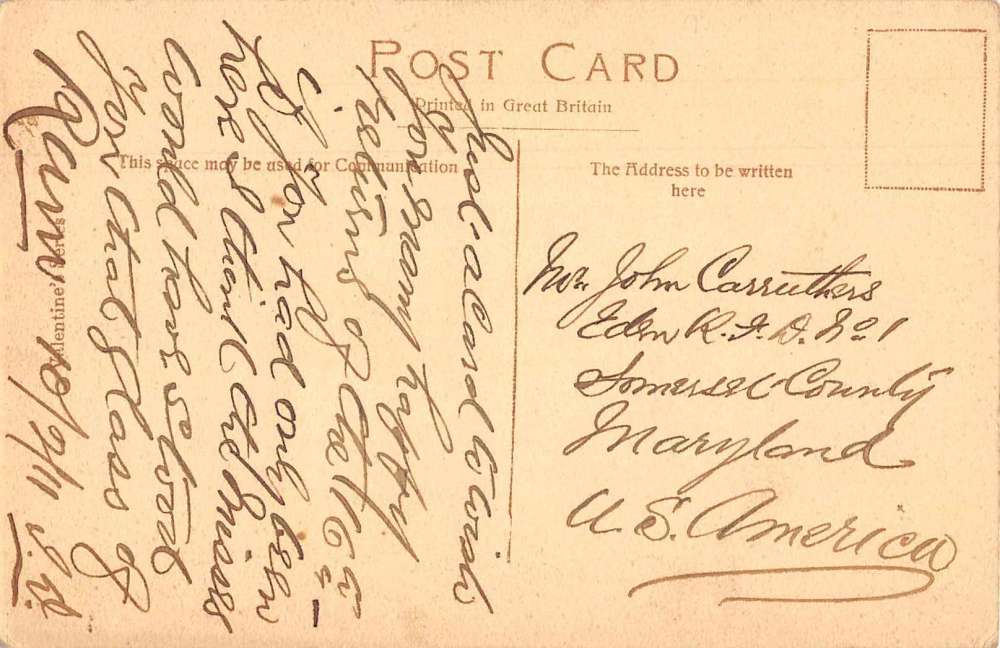 POST CARD
Printed in Great Britain
This space may be used for Communication
The Address to be written
here
Valentine's Series
Just a Card to wish
you many happy
returns of
if you had only been
here I think the Misses
would have stood
you that Glass of
Rum
Mr. John Carruthers
Eden R.F.D. No 1
Somerset County
Maryland
U.S. America